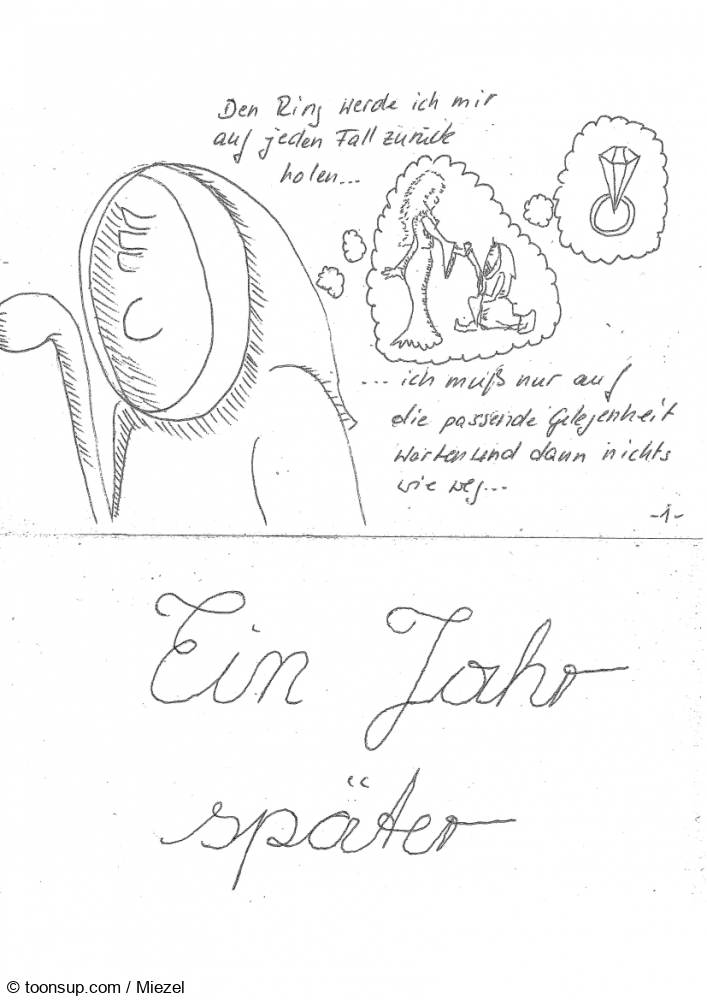 Den Ring werde ich mir
auf jeden Fall zurück
holen...
... ich muß nur auf
die passende Gelegenheit
warten und dann nichts
wie weg...
-1-
Ein Jahr
später
© toonsup.com / Miezel